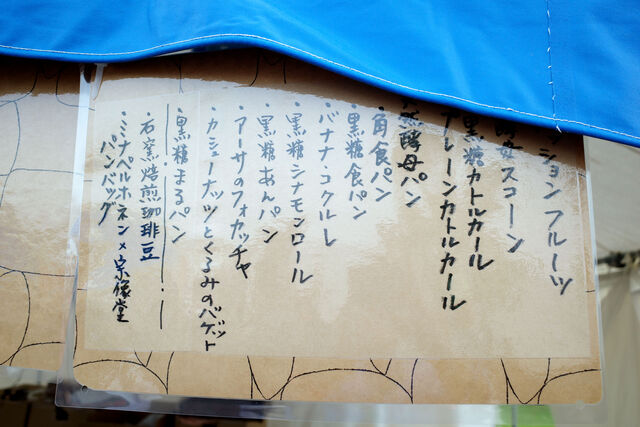 ションフルーツ
酵母スコーン
黒糖カトルカール
プレーンカトルカール
然酵母パン
・角食パン
・黒糖食パン
・バナナ・コクルレ
・黒糖シナモンロール
・黒糖あんパン
・アーサのフォカッチャ
・カシューナッツとくるみのバゲット
・黒糖まるパン
・石窯焙煎珈琲豆
・ミナペルホネン×宗像堂
パンバッグ